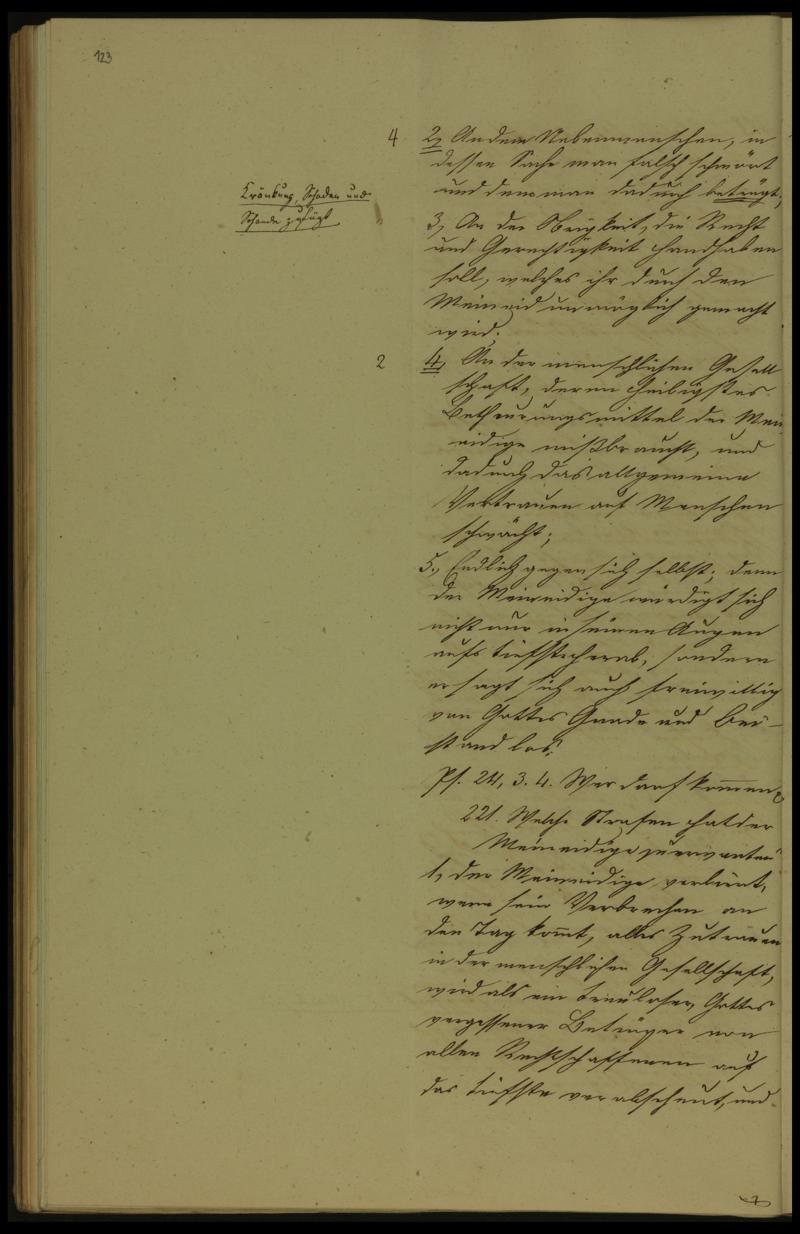 123
4
2, An dem Nebenmenschen, in
dessen Sache man falsch schwört
und den man dadurch beträgt,
Kränkung, Schaden und
Schande zufügt
3, An der Obrigkeit, die Recht
und Gerechtigkeit handhaben
soll, welches ihr durch den
Meineid unmöglich gemacht
wird;
2
4, An der menschlichen Gesell
schaft, deren heiligstes
Betheurungsmittel der Mein
eidige mißbraucht, und
dadurch das allgemeine
Vertrauen auf Menschen
schwächt;
5., Endlich gegen sich selbst; denn
der Meineidige würdigt sich
nicht nur in seinen Augen
aufs tiefste herab, sondern
er sagt sich auch freiwillig
von Gottes Gnade und Bei-
stand los.
Ps. 24, 3. 4. Wer darf kom̅en
221. Welche Strafen hat der
Meineidige zu erwarten
1, der Meineidige verliert,
wenn sein Verbrechen an
den Tag kom̅t, alles Zutrauen
in der menschlichen Gesellschaft,
wird als ein treuloser, Gottes
vergessener Betrüger von
allen Rechtschaffenen auf
das tiefste verabscheut, und